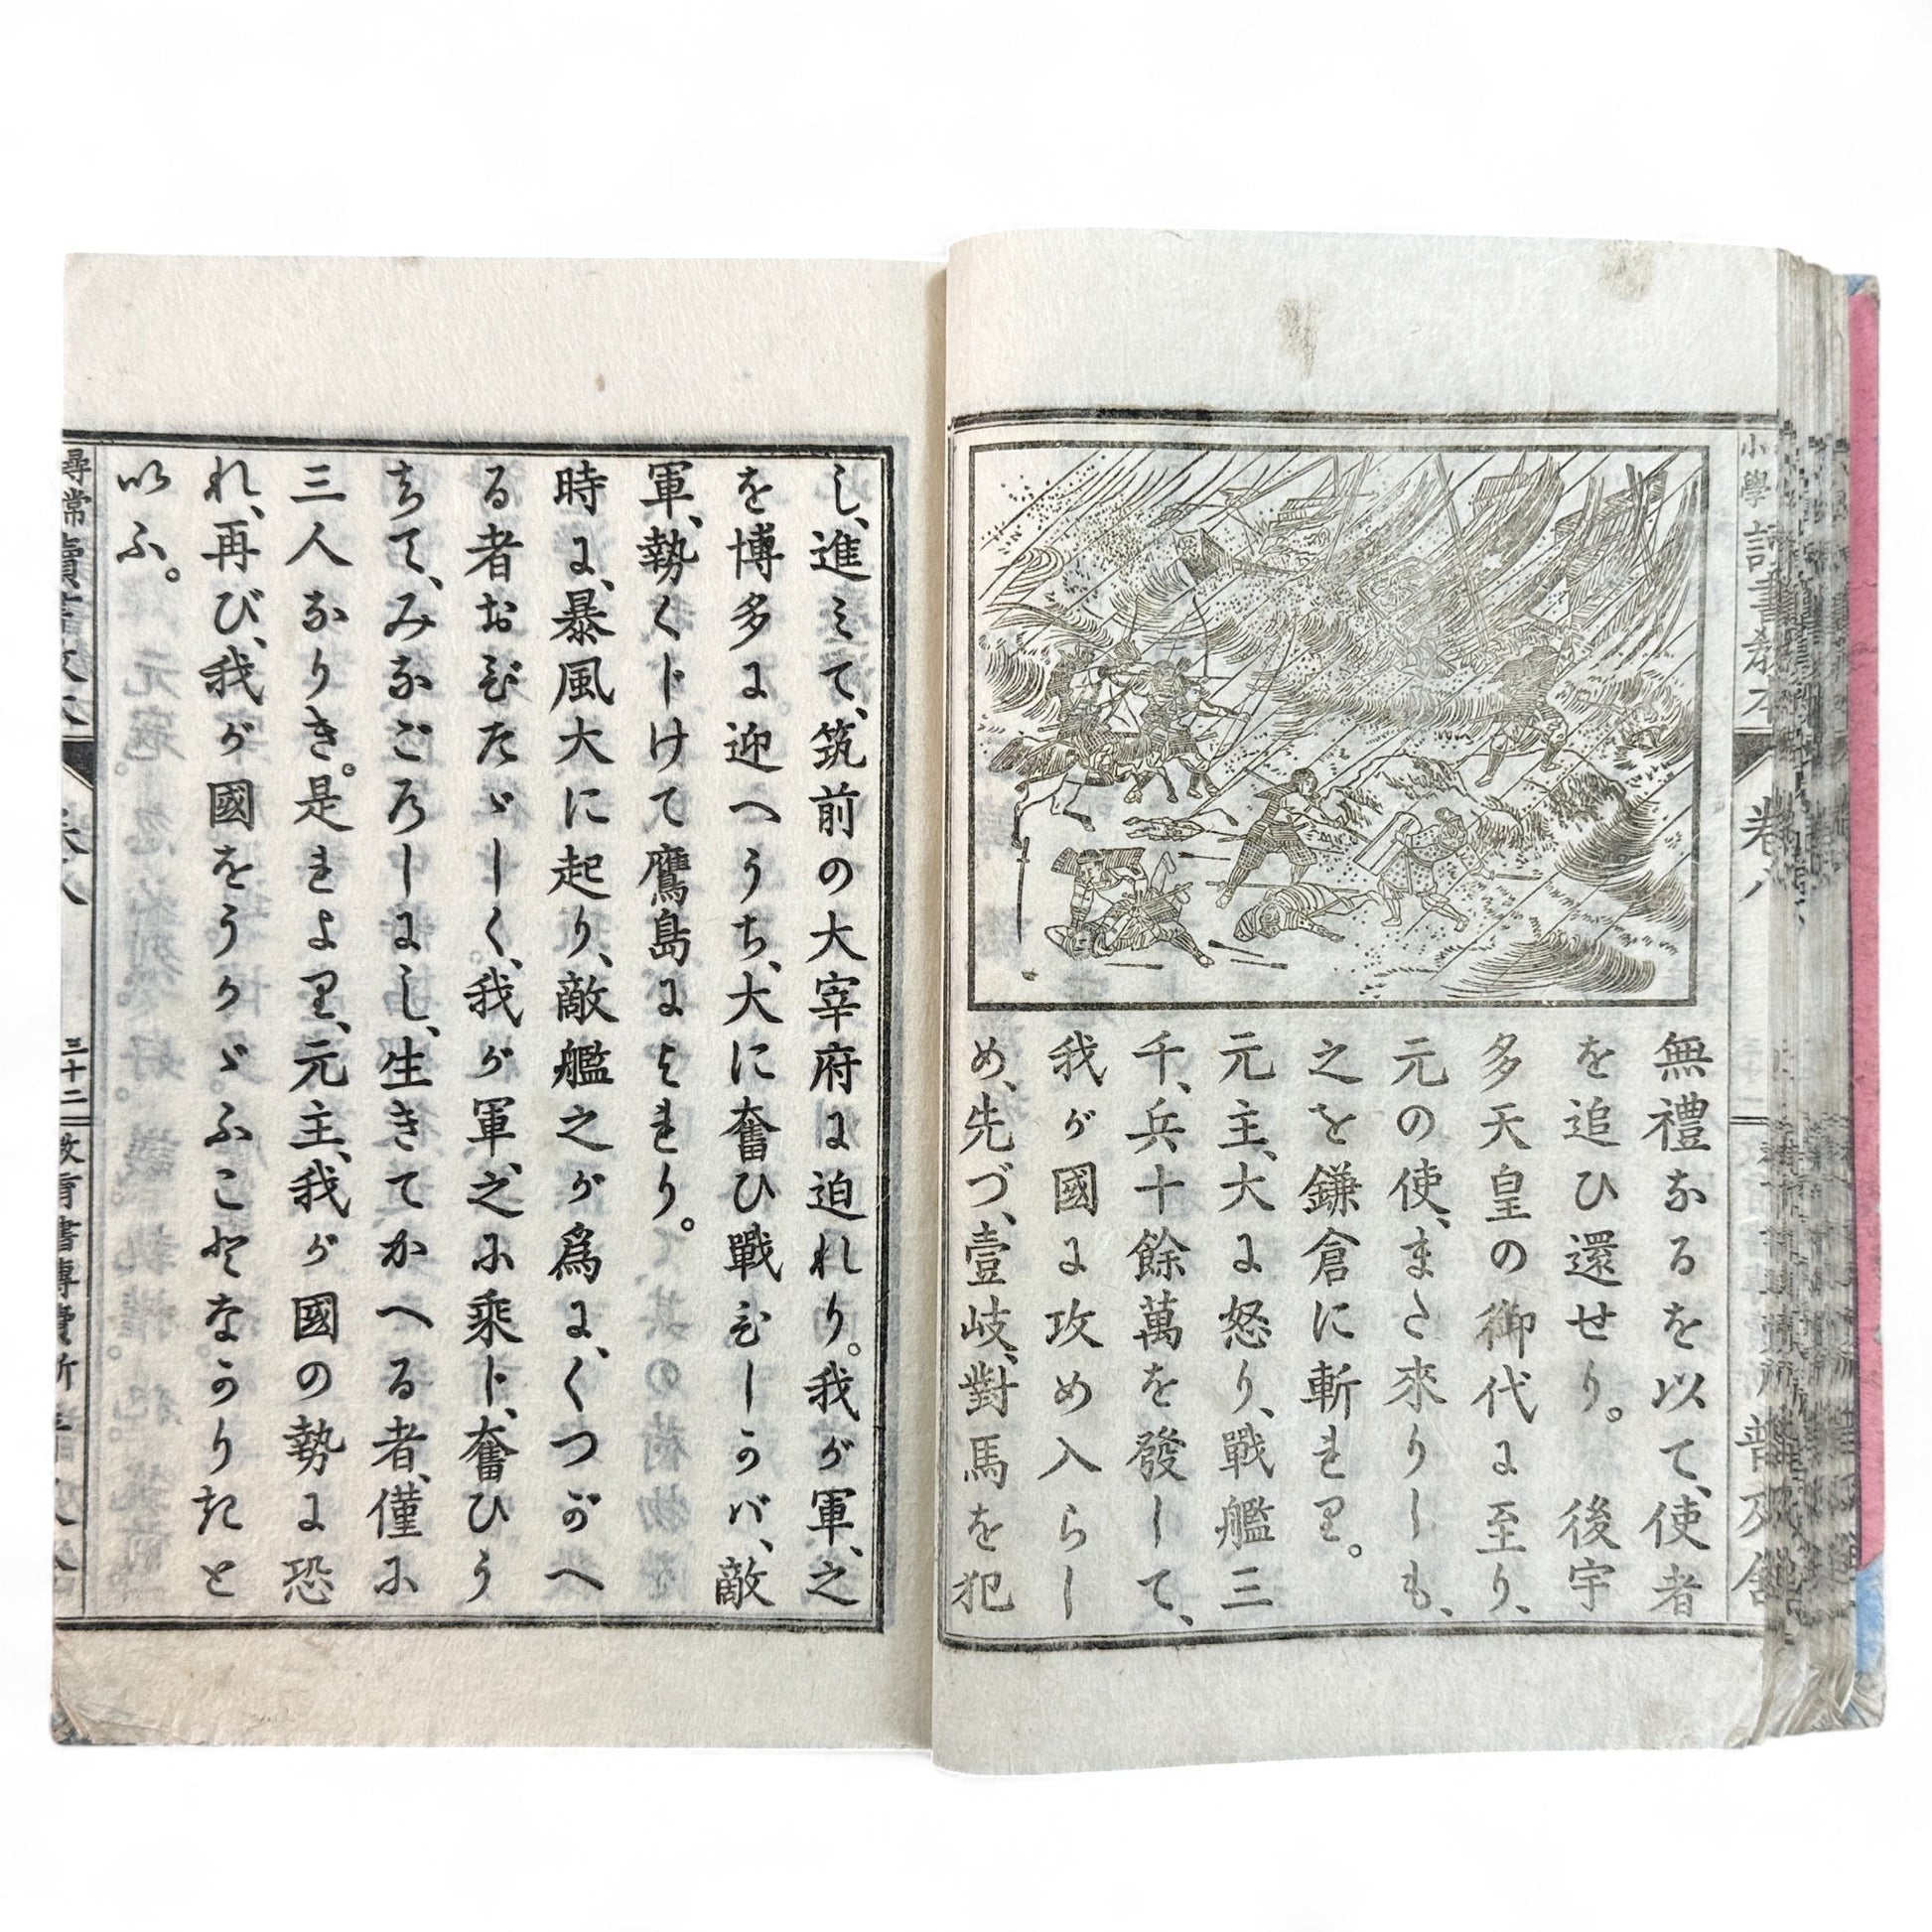 無禮なるを以て、使者
を追ひ還せり。後宇
多天皇の御代に至り、
元の使、また來りしも、
之を鎌倉に斬れり。
元主、大に怒り、戰艦三
千、兵十餘萬を發して、
我が國に攻め入らし
め、先づ、壹岐、對馬を犯
し、進みて、筑前の大宰府に迫れり。我が軍、之
を博多に迎へうち、大に奮ひ戰ひしかバ、敵
軍、勢くじけて鷹島によれり。
時に、暴風大に起り、敵艦之が爲に、くつがへ
る者おびたゞしく、我が軍、之に乘じ、奮ひう
ちて、みなごろしにし、生きてかへる者、僅に
三人なりき。是れより、元主、我が國の勢に恐
れ、再び、我が國をうかゞふことなかりきと
いふ。
卷八
三十二